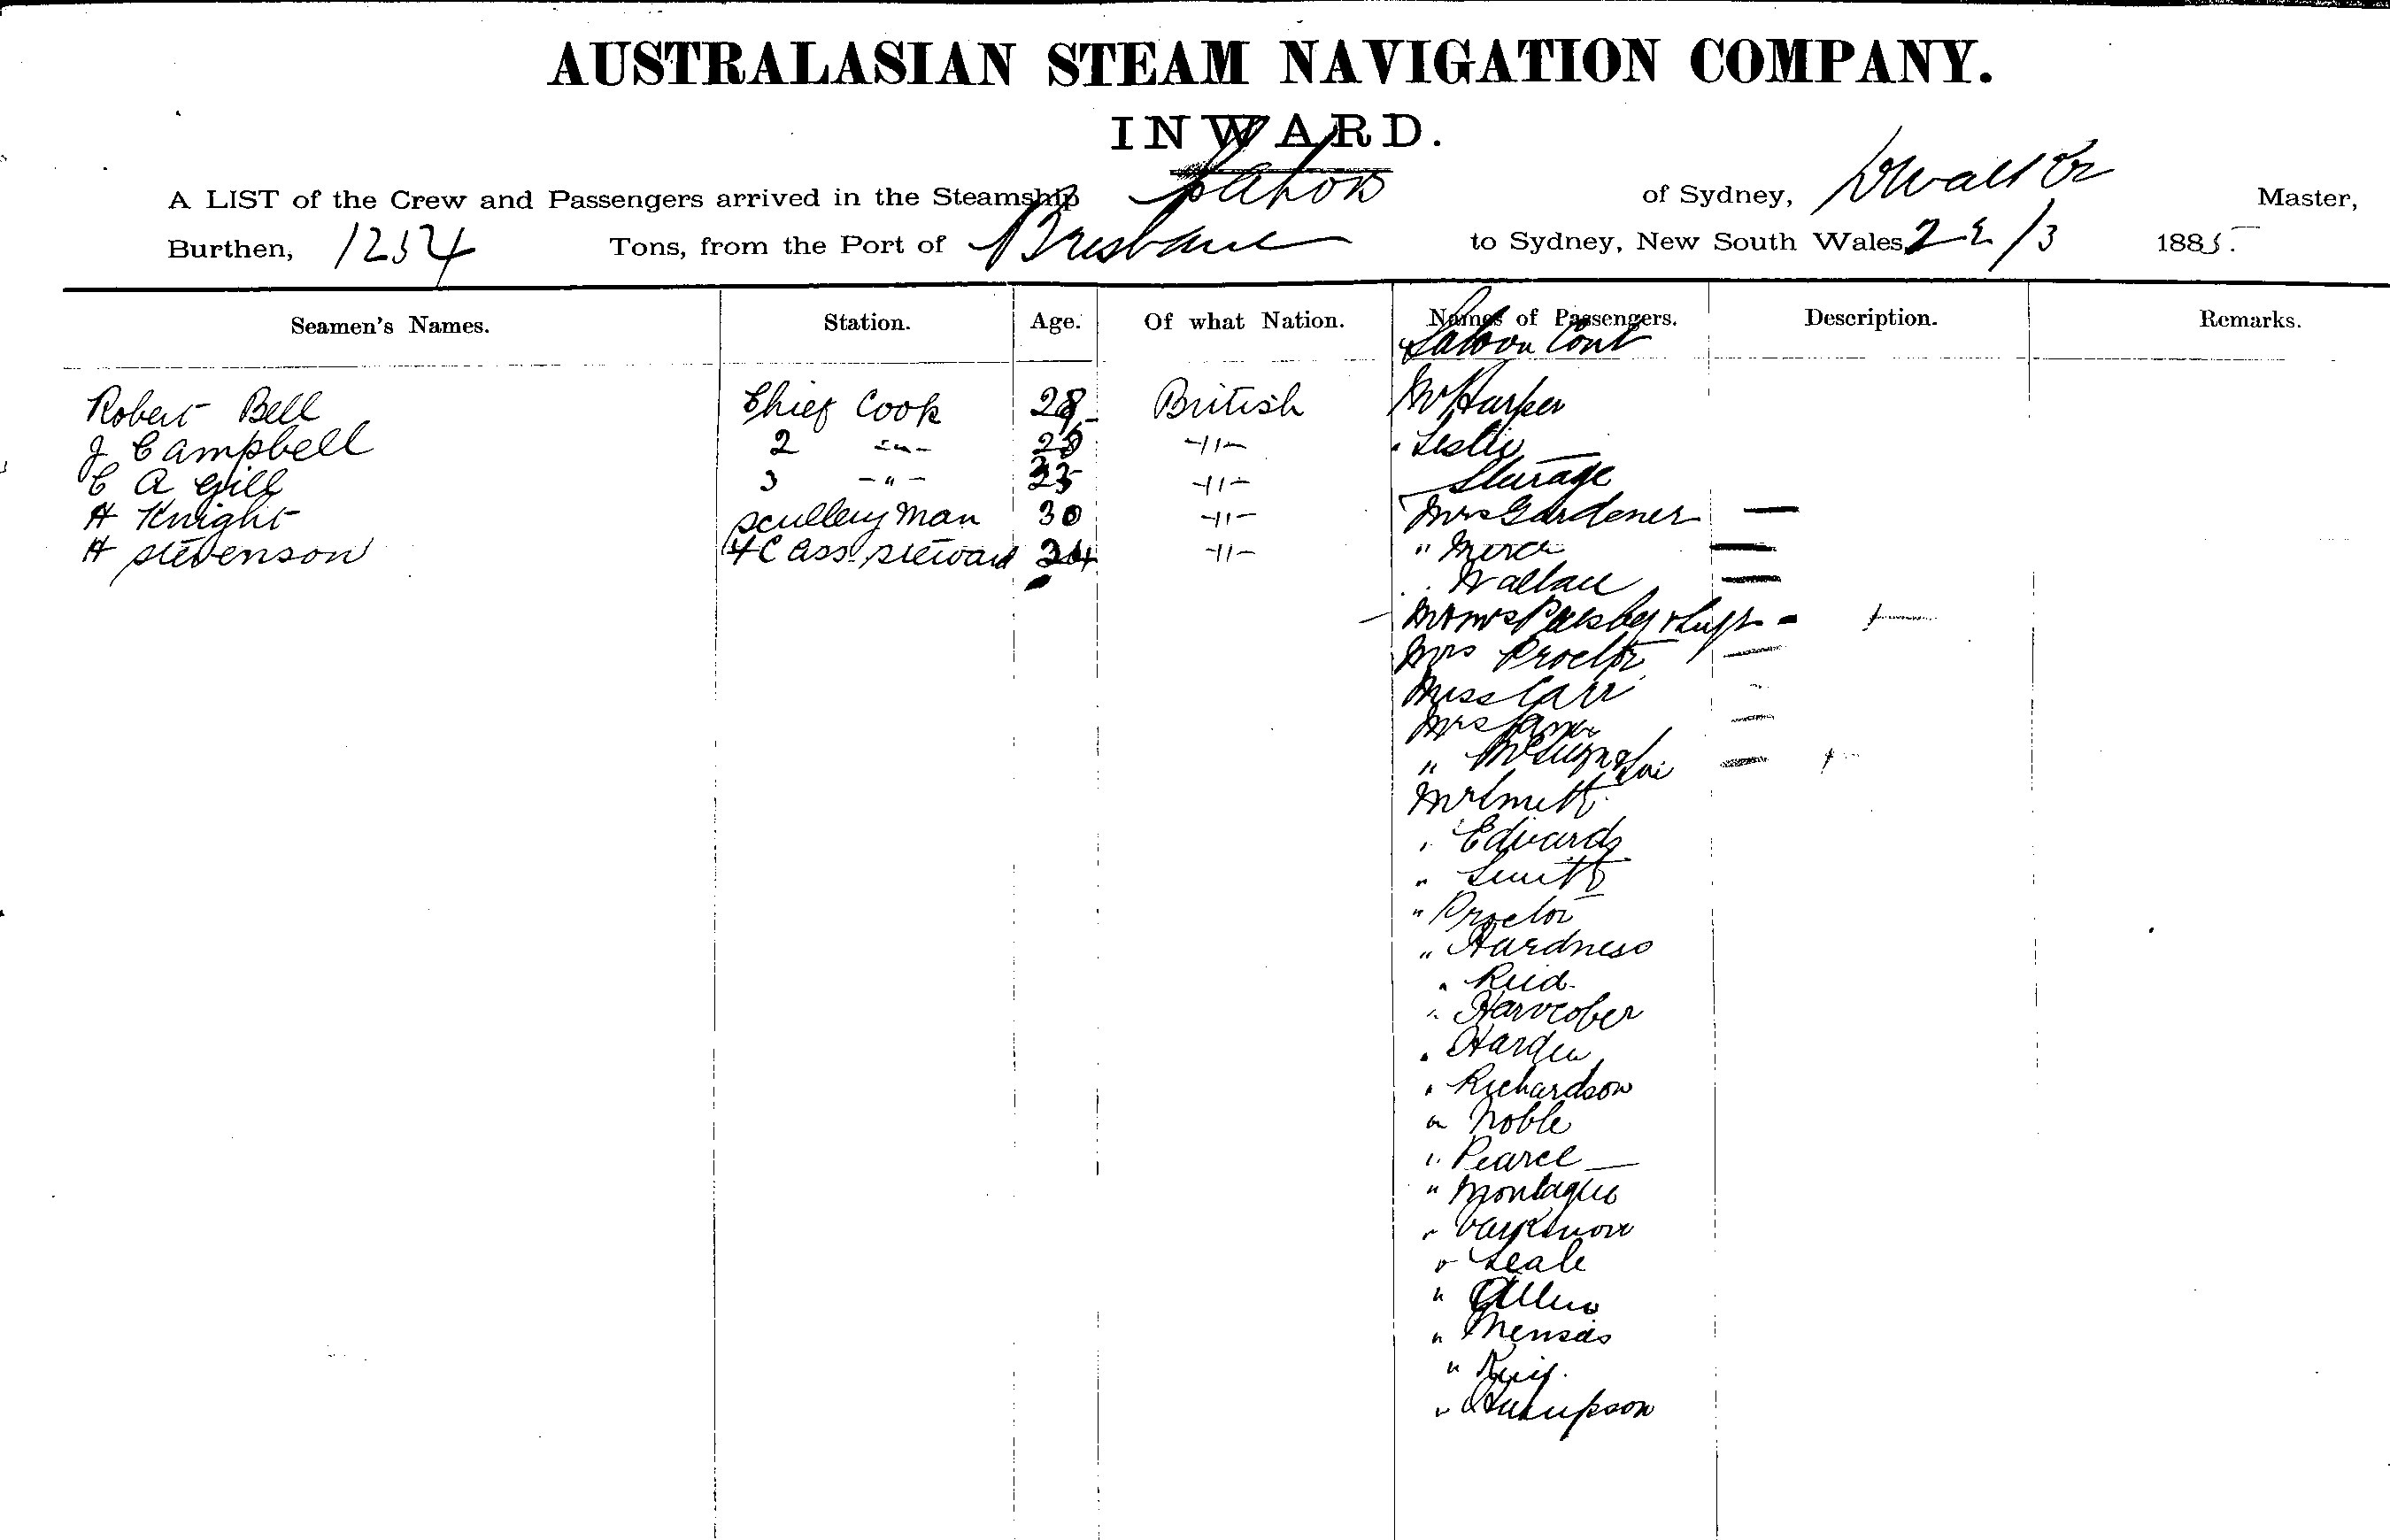 AUSTRALASIAN STEAM NAVIGATION COMPANY.
INWARD.
A LIST of the Crew and Passengers arrived in the Steamship of Sydney, Walker Master,
Burthen, 1254 Tons, from the Port of Brisbane to Sydney, New South Wales 22/3 1885.
Seamen's Names. Station. Age. Of what Nation. Names of Passengers. Description. Remarks.
Saloon Cont
Robert Bell Chief Cook 28 British Mr Harper
J Campbell 2 -"- -"- " Leslie
C A Gill 3 -"- -"- Steerage
H Knight Scullery Man 30 -"- Mrs Gardener —
H Stevenson Ass Steward 24 -"- "
" Wallace —
Mr & Mrs
Mrs Proctor —
Miss Carr
Mrs
"
Mr Smith
" Edwards
" Smith
" Proctor
" Hardness
" Reid
"
" Harden
" Richardson
" Noble
" Pearce
" Montague
"
" Seale
" Allen
"
"
"